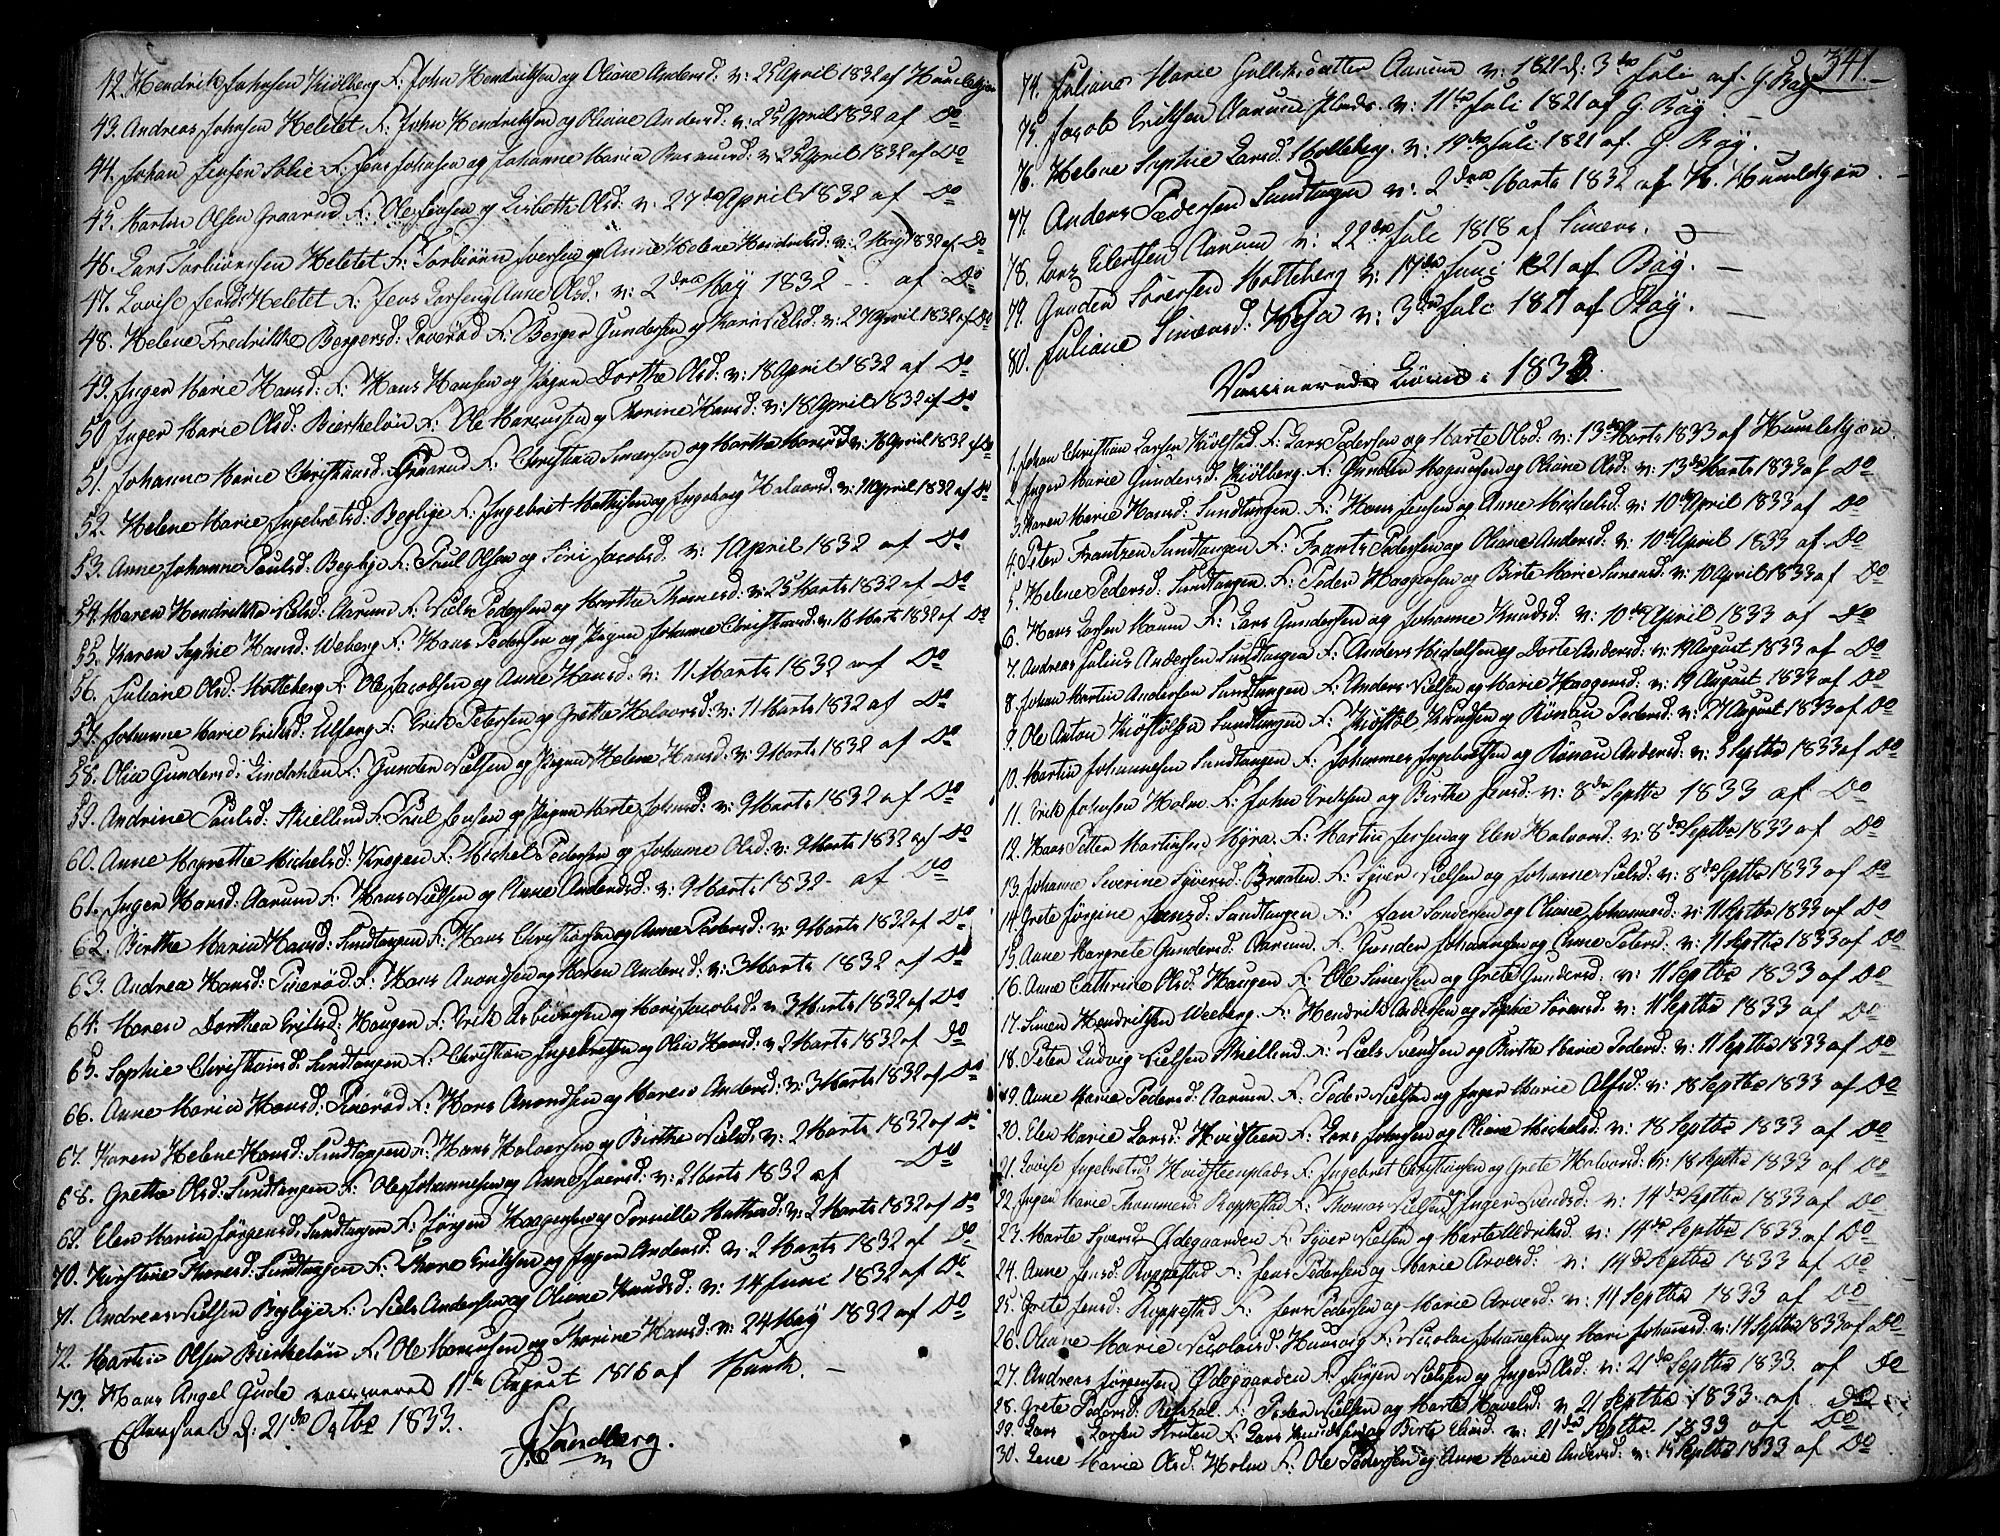 42. Hendrik Johnsen Kiölberg F: John Hendriksen og Oliane Andersd: v: 25 April 1832 af Humlekjær
43. Andreas Johnsen Heletet F: John Hendriksen og Oliane Andersd: v: 25 April 1832 af Do
44. Johan Jensen Solie F: Jens Johnsen og Johanne Maria Rasmusd: v: 25 April 1832 af Do
45. Martin Olsen Graarud F: Ole Jensen og Lisbeth Olsd: v: 27de April 1832 af Do
46. Lars Torbiörnsen Heletet F: Torbiörn Iversen og Anne Helene Hendriksd: v: 2 May 1832 af Do
47. Lovise Jensd: Heletet F: Jens Larsen og Anne Olsd: v: 2den May 1832 - - af Do
48. Helene Fredrikke Bergersd: F: Berger Gundersen og Karin Nielsd: v: 27 April 1832 af Do
49. Inger Marie Hansd: F: Hans Hansen og Dorthe Olsd: v: 18 April 1832 af Do
50 Inger Marie Olsd: Bierkeløn F: Ole Marcussen og Thorine Hansd: v: 18 April 1832 af Do
51. Johanne Marie Christiansd: Graarud F: Christian Simensen og Marthe Hansd: v: 18 April 1832 af Do
52. Helene Marie Ingebretsd: Begbye F: Ingebret Mathisen og Ingeborg Halvorsd: v: April 1832 af Do
53. Anne Johanne Paulsd: Begbye F: Paul Olsen og Siri Jacobsd: v: 1 April 1832 af Do
54. Maren Hendrikke Nielsd: Aarum F: Niels Pedersen og Marthe Thomesd: v: 25 Marts 1832 af Do
55. Karen Sophie Hansd: Weberg F: Hans Pedersen og Johanne Christiansd: v: 16 Marts 1832 af Do
56. Juliane Olsd: Holteberg F: Ole Jacobsen og Anne Hansd: v: 11 Marts 1832 af Do
57. Johanne Marie Eriksd: Ulfeng F: Erik Petersen og Grethe Halvorsd: v: 11 Marts 1832 af Do
58. Olia Gundersd: Lindahlen F: Gunder Nielsen og Helene Hansd: v: 9 Marts 1832 af Do
59. Andrine Paulsd: Skiellind F: Paul Jensen og Marte Johnsd: v: 9 Marts 1832 af Do
60. Anne Magrethe Michelsd: Krogen F: Michel Pedersen og Johanne Olsd: v: 9 Marts 1832 af Do
61. Inger Hansd: Aarum F: Hans Nielsen og Anne Andersd: v: 9 Marts 1832 - af Do
62. Birthe Maria Hansd: Sundtangen F: Hans Christiansen og Anne Pedersd: v: 9 Marts 1832 af Do
63. Andrea Hansd: F: Hans Amondsen og Maren Andersd: v: 3 Marts 1832 af Do
64. Maren Dorthea Eriksd: Haugen F: Erik Asbiörnsen og Mari Jacobsd: v: 3 Marts 1832 af Do
65. Sophie Christiansd: Sundtangen F: Christian Ingebretsen og Olia Hansd: v: 2 Marts 1832 af Do
66. Anne Maria Hansd: F: Hans Amondsen og Maren Andersd: v: 3 Marts 1832 af Do
67. Karen Helene Hansd: Sundtangen F: Hans Halvorsen og Birthe Nielsd: v: 2 Marts 1832 af Do
68. Grethe Olsd: Sundtangen F: Ole Johannesen og Anne Iversd: v: 2 Marts 1832 af Do
69. Elen Maria Jörgensd: Sundtangen F: Jörgen Haagensen og Pernille Mathisd: v: 2 Marts 1832 af Do
70. Kirstine Thoresd: Sundtangen F: Thore Eriksen og Ingen Andersd: v: 2 Marts 1832 af Do
71. Andreas Nielsen Begbye F: Niels Andersen og Oliane Knudsd: v: 14 Juni 1832 af Do
72. Martin Olsen Bierkeløn F: Ole Marcusen og Thorine Hansd: v: 24 May 1832 af Do
73. Hans Angel Gude vaccineret 11te August 1816 af Munk. -
d: 21de Octbr 1833.
J. Sandberg.
341.
74. Juliane Marie Gulliksdatter Aarum v: 1821 d: 3de Juli af G. Bay
75. Jacob Eriksen Aarum v: 11te Juli 1821 af G. Bay. -
76. Helene Sophie Larsd: Holteberg v: 19de Juli 1821 af G. Bay.
77. Anders Pedersen Sundtangen v: 2den Marts 1832 af H. Humlekjær. -
78. Lars Eilertsen Aarum v: 22de Juli 1818 af Simers. -
79. Gunder Sörensen Holteberg v: 17de Juni 1821 af Bay. -
80. Juliane Simensd: v: 3de Juli 1821 af Bay. -
Vaccinerede Börn i 1833.
1. Johan Christian Larsen Kiölstad F: Lars Pedersen og Marte Olsd: v: 13de Marts 1833 af Humlekjær.
2. Inger Marie Gundersd: Kiölberg F: Gunder Magnusen og Oliane Olsd: v: 13de Marts 1833 af Do
3. Karen Marie Hansd: Sundtangen F: Hans Jensen og Anne Michelsd: v: 10de April 1833 af Do
4. Peter Frantzen Sundtangen F: Frants Pedersen og Oliane Andersd: v: 10de April 1833 af Do
5. Helene Pedersd: Sundtangen F: Peder Haagensen og Birte Marie Simensd: v: 10 April 1833 af Do
6. Hans Larsen Haum F: Lars Gundersen og Johanne Knudsd: v: 10de April 1833 af Do
7. Andreas Julius Andersen Sundtangen F: Anders Michelsen og Dorte Andersd: v: 19 August 1833 af Do
8. Johan Martin Andersen Sundtangen F: Anders Nielsen og Marie Haagensd: v: 19 August 1833 af Do
9. Ole Anton Kiöstolsen Sundtangen F: Kiöstol Knudsen og Rönau Pedersd: v: 27 August 1833 af Do
10. Martin Johannesen Sundtangen F: Johannes Ingebretsen og Rönau Andersd: v: 5 Septbr 1833 af Do
11. Erik Johnsen Holm F: John Eriksen og Birthe Jensd: v: 8de Septbr 1833 af Do
12. Hans Petter Martinsen Myra F: Martin Jensen og Elen Halvorsd: v: 8de Septbr 1833 af Do
13. Johanne Severine Syversd: Braaten F: Syver Nielsen og Johanne Nielsd: v: 8de Septbr 1833 af Do
14. Grete Jörgine Jansd: Sundtangen F: Jan Sandersen og Oliane Johannesd: v: 11 Septbr 1833 af Do
15. Anne Margrete Gundersd: Aarum F: Gunder Johannesen og Anne Petersd: v: 11 Septbr 1833 af Do
16. Anne Cathrine Olsd: Haugen F: Ole Simensen og Grete Gundersd: v: 11 Septbr 1833 af Do
17. Simen Hendriksen Weeberg F: Hendrik Andersen og Sophie Sörensd: v: 11 Septbr 1833 af Do
18. Peter Ludvig Nielsen Skiellind F: Niels Svendsen og Birthe Marie Pedersd: v: 11 Septbr 1833 af Do
19. Anne Marie Pedersd: Aarum F: Peder Nielsen og Inger Marie Alfsd: v: 18 Septbr 1833 af Do
20. Elen Marie Larsd: Hvidsteen F: Lars Johnsen og Oliane Michelsd: v: 18 Septbr 1833 af Do
21. Lovise Ingebretsd: Hvidsteenplads F: Ingebret Christiansen og Grete Halvorsd: v: 18 Septbr 1833 af Do
22. Inger Marie Thommesd: Roppestad F: Thomas Nielsen Inger Svendsd: v: 14de Septbr 1833 af Do
23. Marte Syversd: Ødegaarden F: Syver Nielsen og Marte Uldriksd: v: 14de Septbr 1833 af Do
24. Anne Jensd: Roppestad F: Jens Pedersen og Marie Arvesd: v: 14de Septbr 1833 af Do
25. Grete Jensd: Roppestad F: Jens Pedersen og Marie Arvesd: v: 14 Septbr 1833 af Do
26. Oliane Marie Nicolaisd: Hunsvig F: Nicolai Johannesen og Mari Johannesd: v: 14 Septbr 1833 af Do
27. Andreas Jörgensen Ødegaarden F: Jörgen Nielsen og Ingen Olsd: v: 21de Septbr 1833 af Do
28. Grete Pedersd: F: Peder Nielsen og Marte Havelsd: v: 21 Septbr 1833 af Do
29. Lars Larsen F: Lars Knudsen og Birte Eliasd: v: 21de Septbr 1833 af Do
30. Lene Marie Olsd: Holm F: Ole Pedersen og Anne Marie Andersd: v: 15 Septbr 1833 af Do